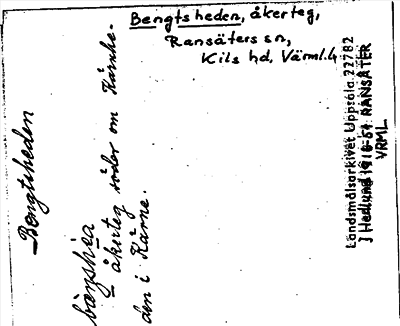 Bengtsheden, åkerteg,
Ransäters sn,
Kils hd, Värml. l.
Bengtsheden
åkerteg söder om Kärnhe-
den i Kärne.
Landsmålsarkivet Uppsala 22782
J Hedlund RANSÄTER
VRML